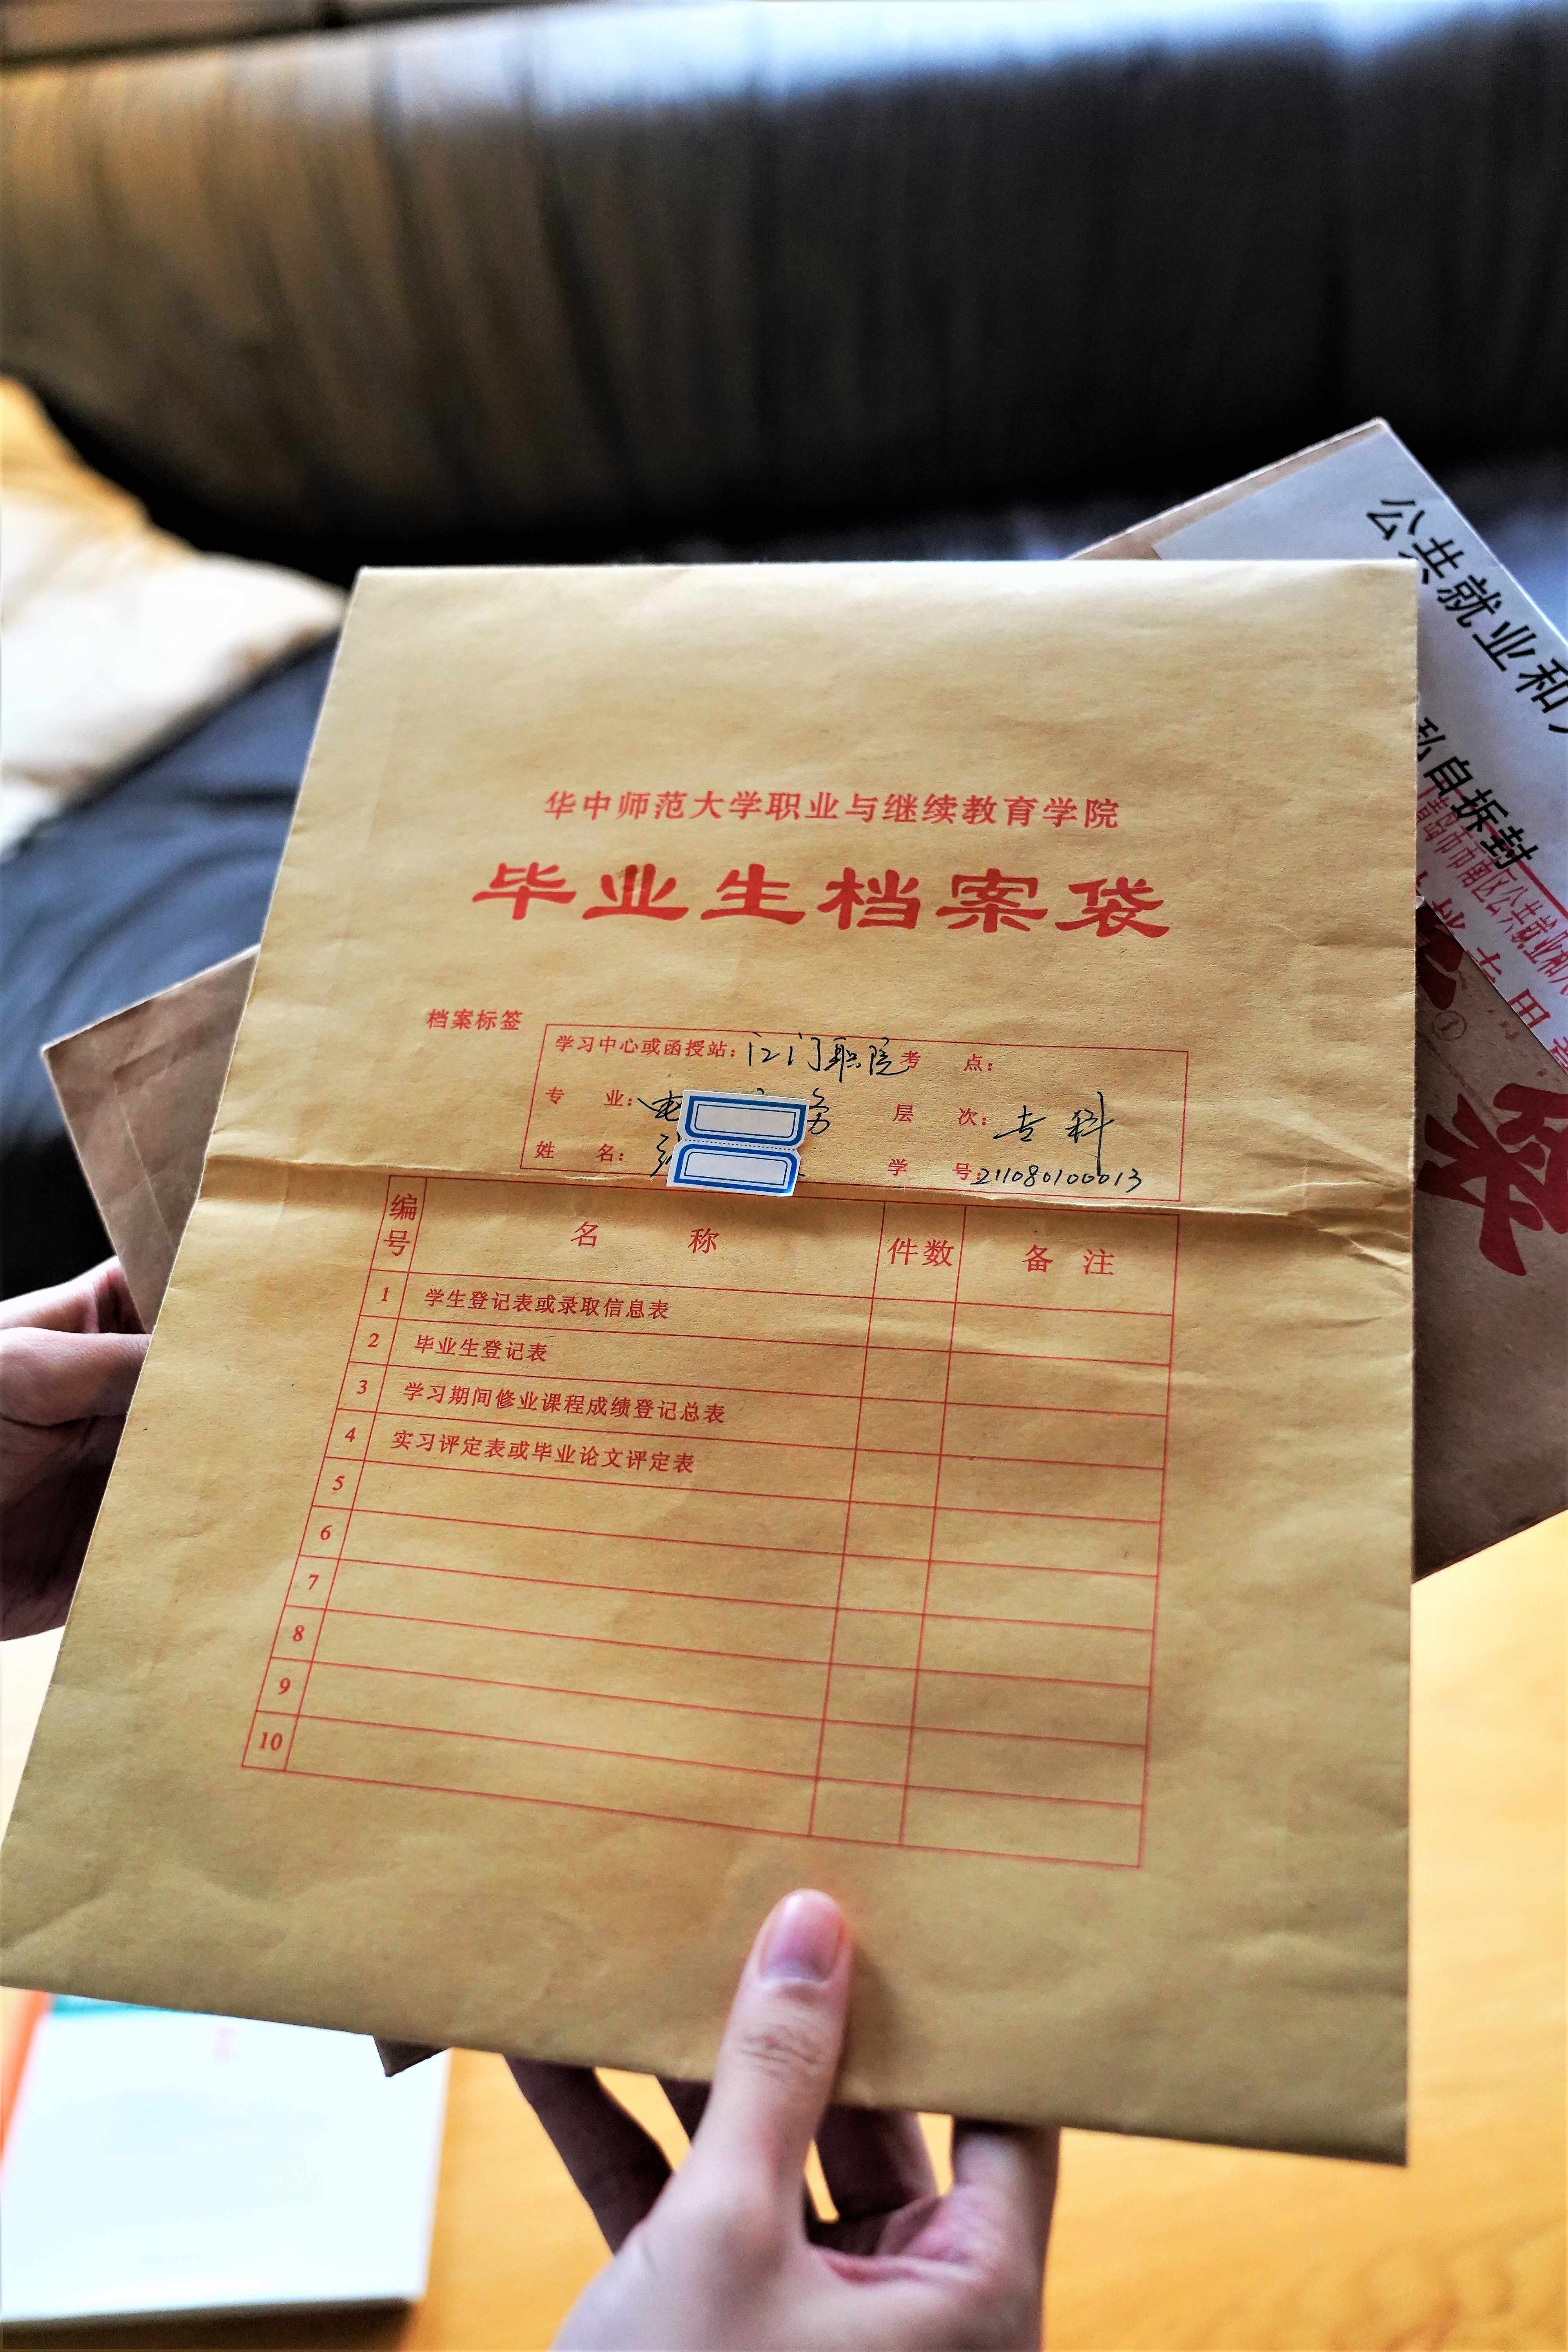 华中师范大学职业与继续教育学院
毕业生档案袋
档案标签
学习中心或函授站：江门职院 考 点：
专 业：电 务 层 次：专科
姓 名： 学 号：211080100013
编号 名 称 件数 备 注
1 学生登记表或录取信息表
2 毕业生登记表
3 学习期间修业课程成绩登记总表
4 实习评定表或毕业论文评定表
5
6
7
8
9
10
公共就业和
私自拆封
青岛市市南区公共就业和人
专用章